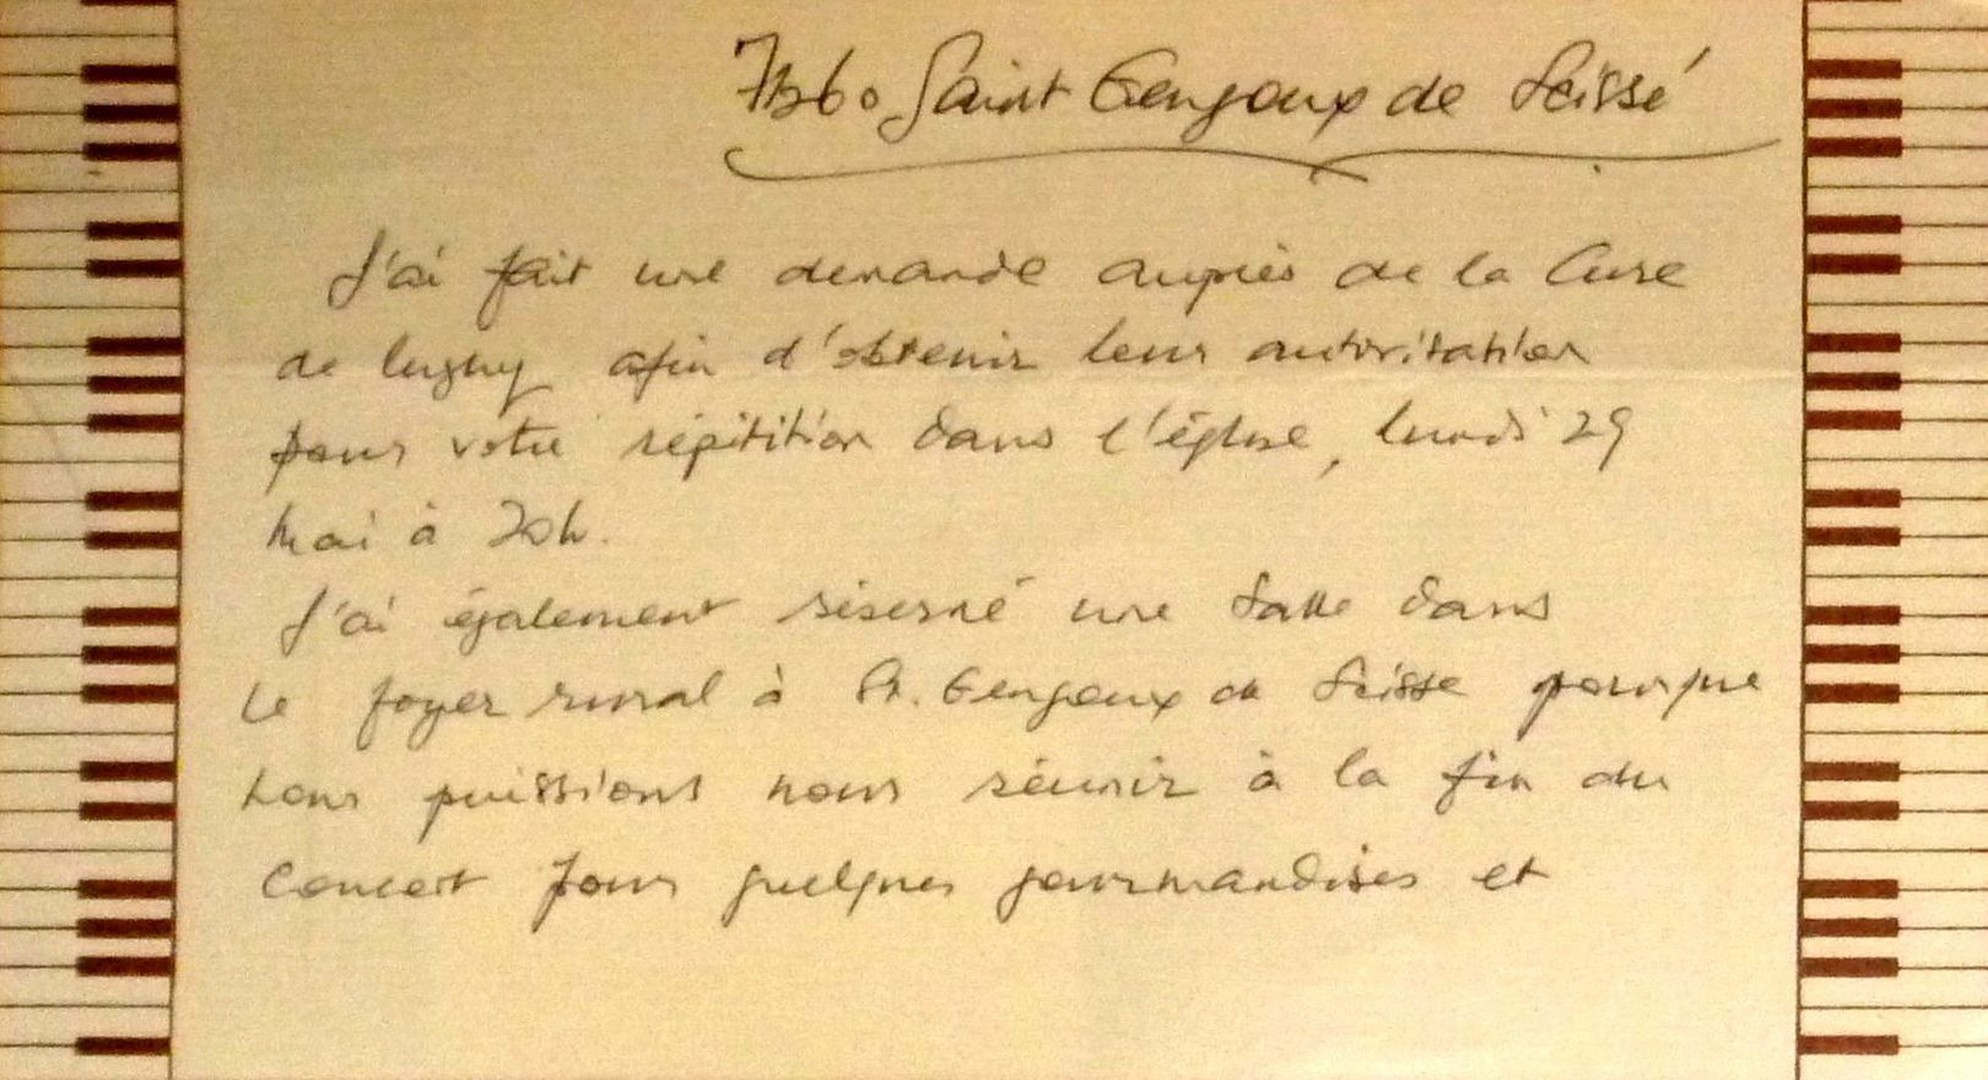 71260 Saint Gengoux de Scissé
J'ai fait une demande auprès de la Cure
de Lugny afin d'obtenir leur autorisation
pour votre répétition dans l'église, lundi 29
Mai à 20h.
J'ai également réservé une salle dans
le foyer rural à St. Gengoux de Scissé pour que
nous puissions nous réunir à la fin du
Concert pour quelques gourmandises et